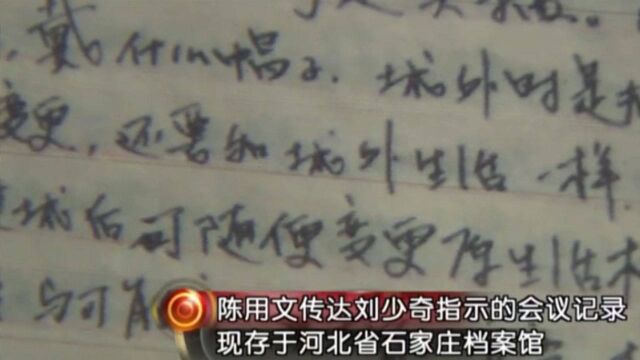 戴什么帽子．城外时是
变更，还要和城外生活一样
城后可随便变更原生活
陈用文传达刘少奇指示的会议记录
现存于河北省石家庄档案馆